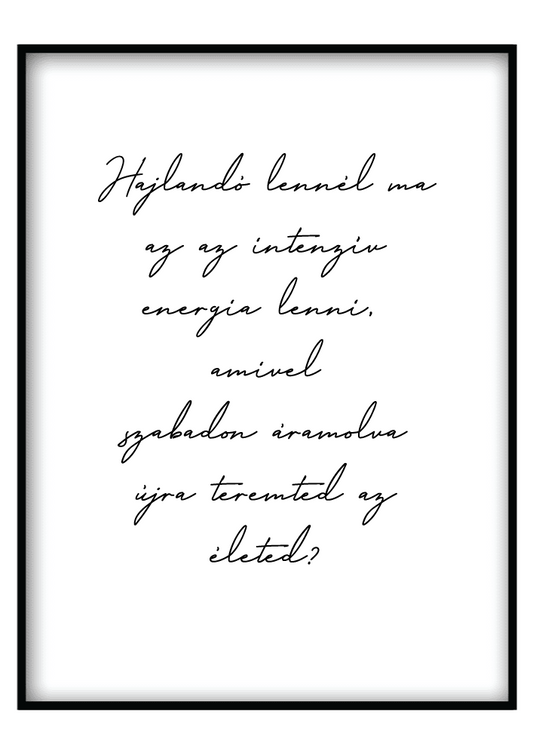 Hajlandó lennél ma
az az intenzív
energia lenni,
amivel
szabadon áramolva
újra teremted az
életed?